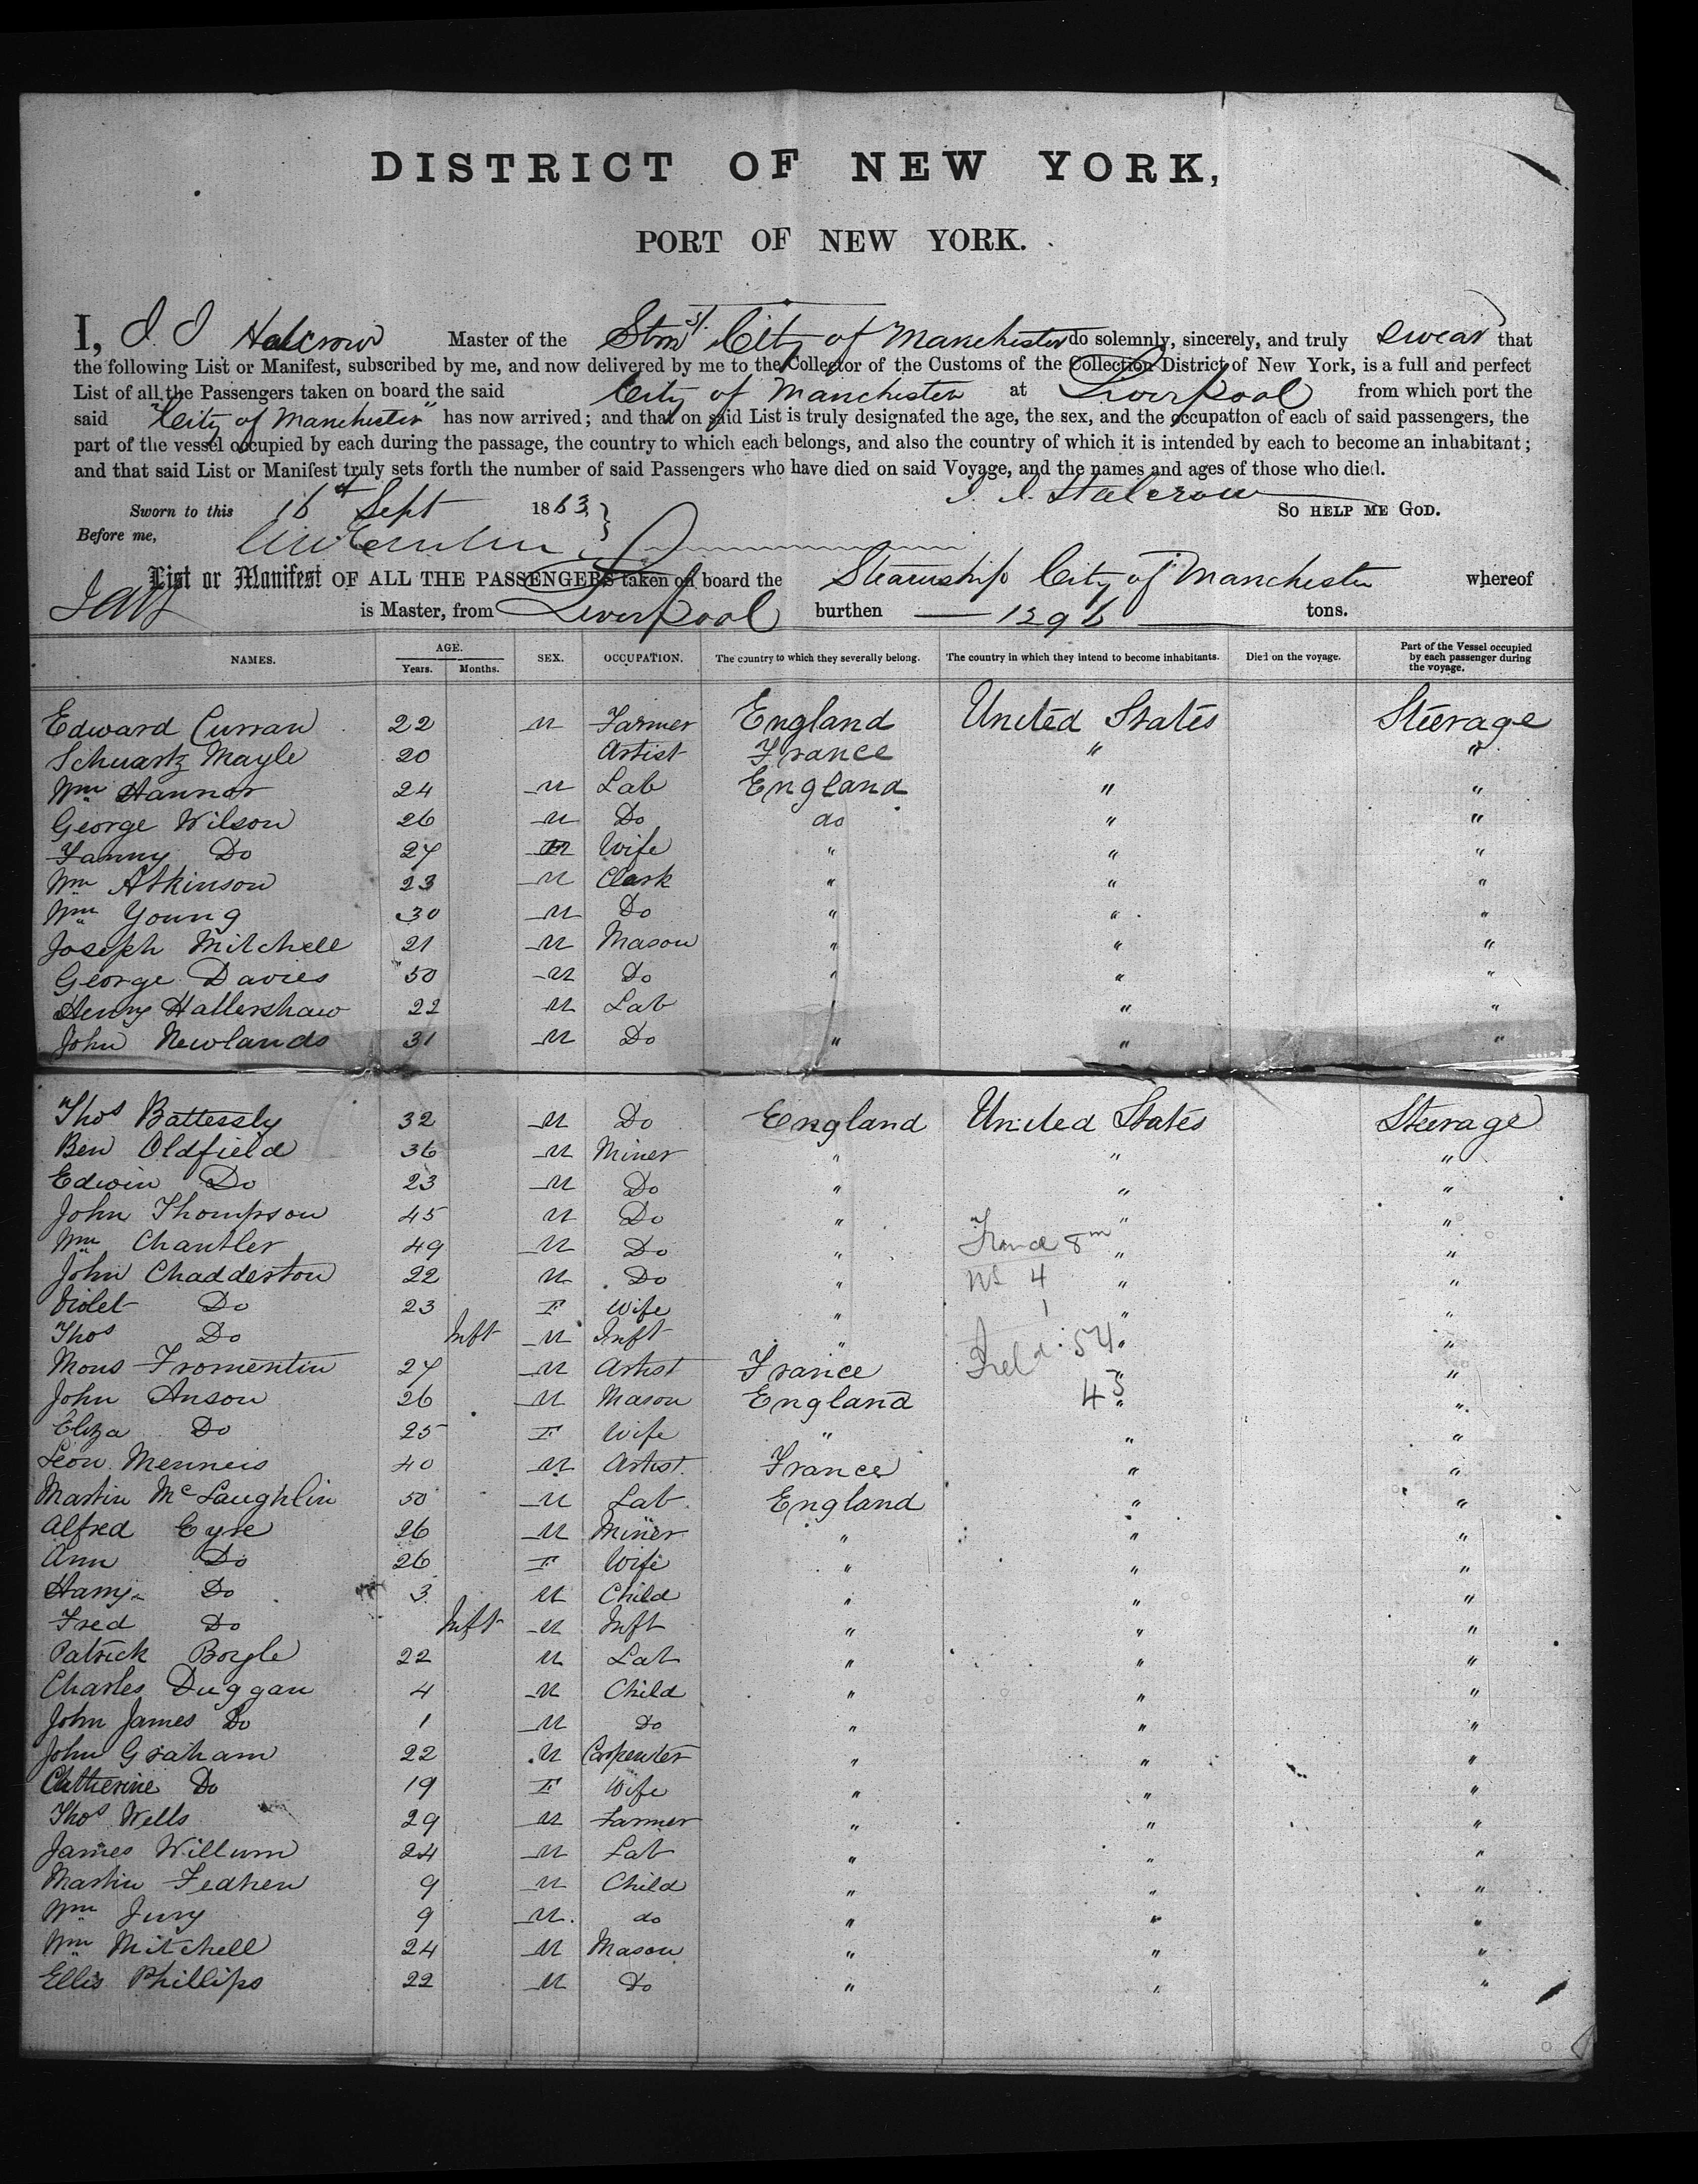 DISTRICT OF NEW YORK,
PORT OF NEW YORK.
I, J. J. Halcrow Master of the Stm St. City of Manchester do solemnly, sincerely, and truly swear that
the following List or Manifest, subscribed by me, and now delivered by me to the Collector of the Customs of the Collection District of New York, is a full and perfect
List of all the Passengers taken on board the said City of Manchester at Liverpool from which port the
said "City of Manchester" has now arrived; and that on said List is truly designated the age, the sex, and the occupation of each of said passengers, the
part of the vessel occupied by each during the passage, the country to which each belongs, and also the country of which it is intended by each to become an inhabitant;
and that said List or Manifest truly sets forth the number of said Passengers who have died on said Voyage, and the names and ages of those who died.
J. J. Halcrow
Sworn to this 16th Sept 1863 } So help me God.
Before me,
List or Manifest OF ALL THE PASSENGERS taken on board the Steamship City of Manchester whereof
is Master, from Liverpool burthen 1296 tons.
NAMES. AGE. Years. Months. SEX. OCCUPATION. The country to which they severally belong. The country in which they intend to become inhabitants. Died on the voyage. Part of the Vessel occupied by each passenger during the voyage.
Edward Curran 22 M Farmer England United States Steerage
Schuartz Mayle 20 Artist France " "
Wm Hannor 24 M Lab England " "
George Wilson 26 M Do do " "
Fanny Do 27 Wife " " "
Wm Atkinson 23 M Clark " " "
Wm Young 30 M Do " " "
Joseph Mitchell 21 M Mason " " "
George Davies 50 M Do " " "
Henry Hallershaw 22 M Lab " " "
John Newlands 31 M Do " " "
Thos Battessly 32 M Do England United States Steerage
Ben Oldfield 36 M Miner " " "
Edwin Do 23 M Do " " "
John Thompson 45 M Do " " "
Wm Chantler 49 M Do " France 8m " "
John Chadderton 22 M Do " 4 " "
Violet Do 23 F Wife " 1 " "
Thos Do Inft M Inft " 54 " "
Mons Fromentin 27 M Artist France " "
John Anson 26 M Mason England 43 " "
Eliza Do 25 F Wife " " "
Leon Menneis 40 M Artist France " "
Martin McLaughlin 50 M Lab England " "
Alfred Eyre 26 M Miner " " "
Ann Do 26 F Wife " " "
Harry Do 3 M Child " " "
Fred Do Inft M Inft " " "
Patrick Boyle 22 M Lab " " "
Charles Duggan 4 M Child " " "
John James Do 1 M Do " " "
John Graham 22 M Carpenter " " "
Catherine Do 19 F Wife " " "
Thos Wells 29 M Farmer " " "
James Willum 24 M Lab " " "
Martin Feahen 9 M Child " " "
Wm Jury 9 M do " " "
Wm Mitchell 24 M Mason " " "
Ellis Phillips 22 M Do " " "